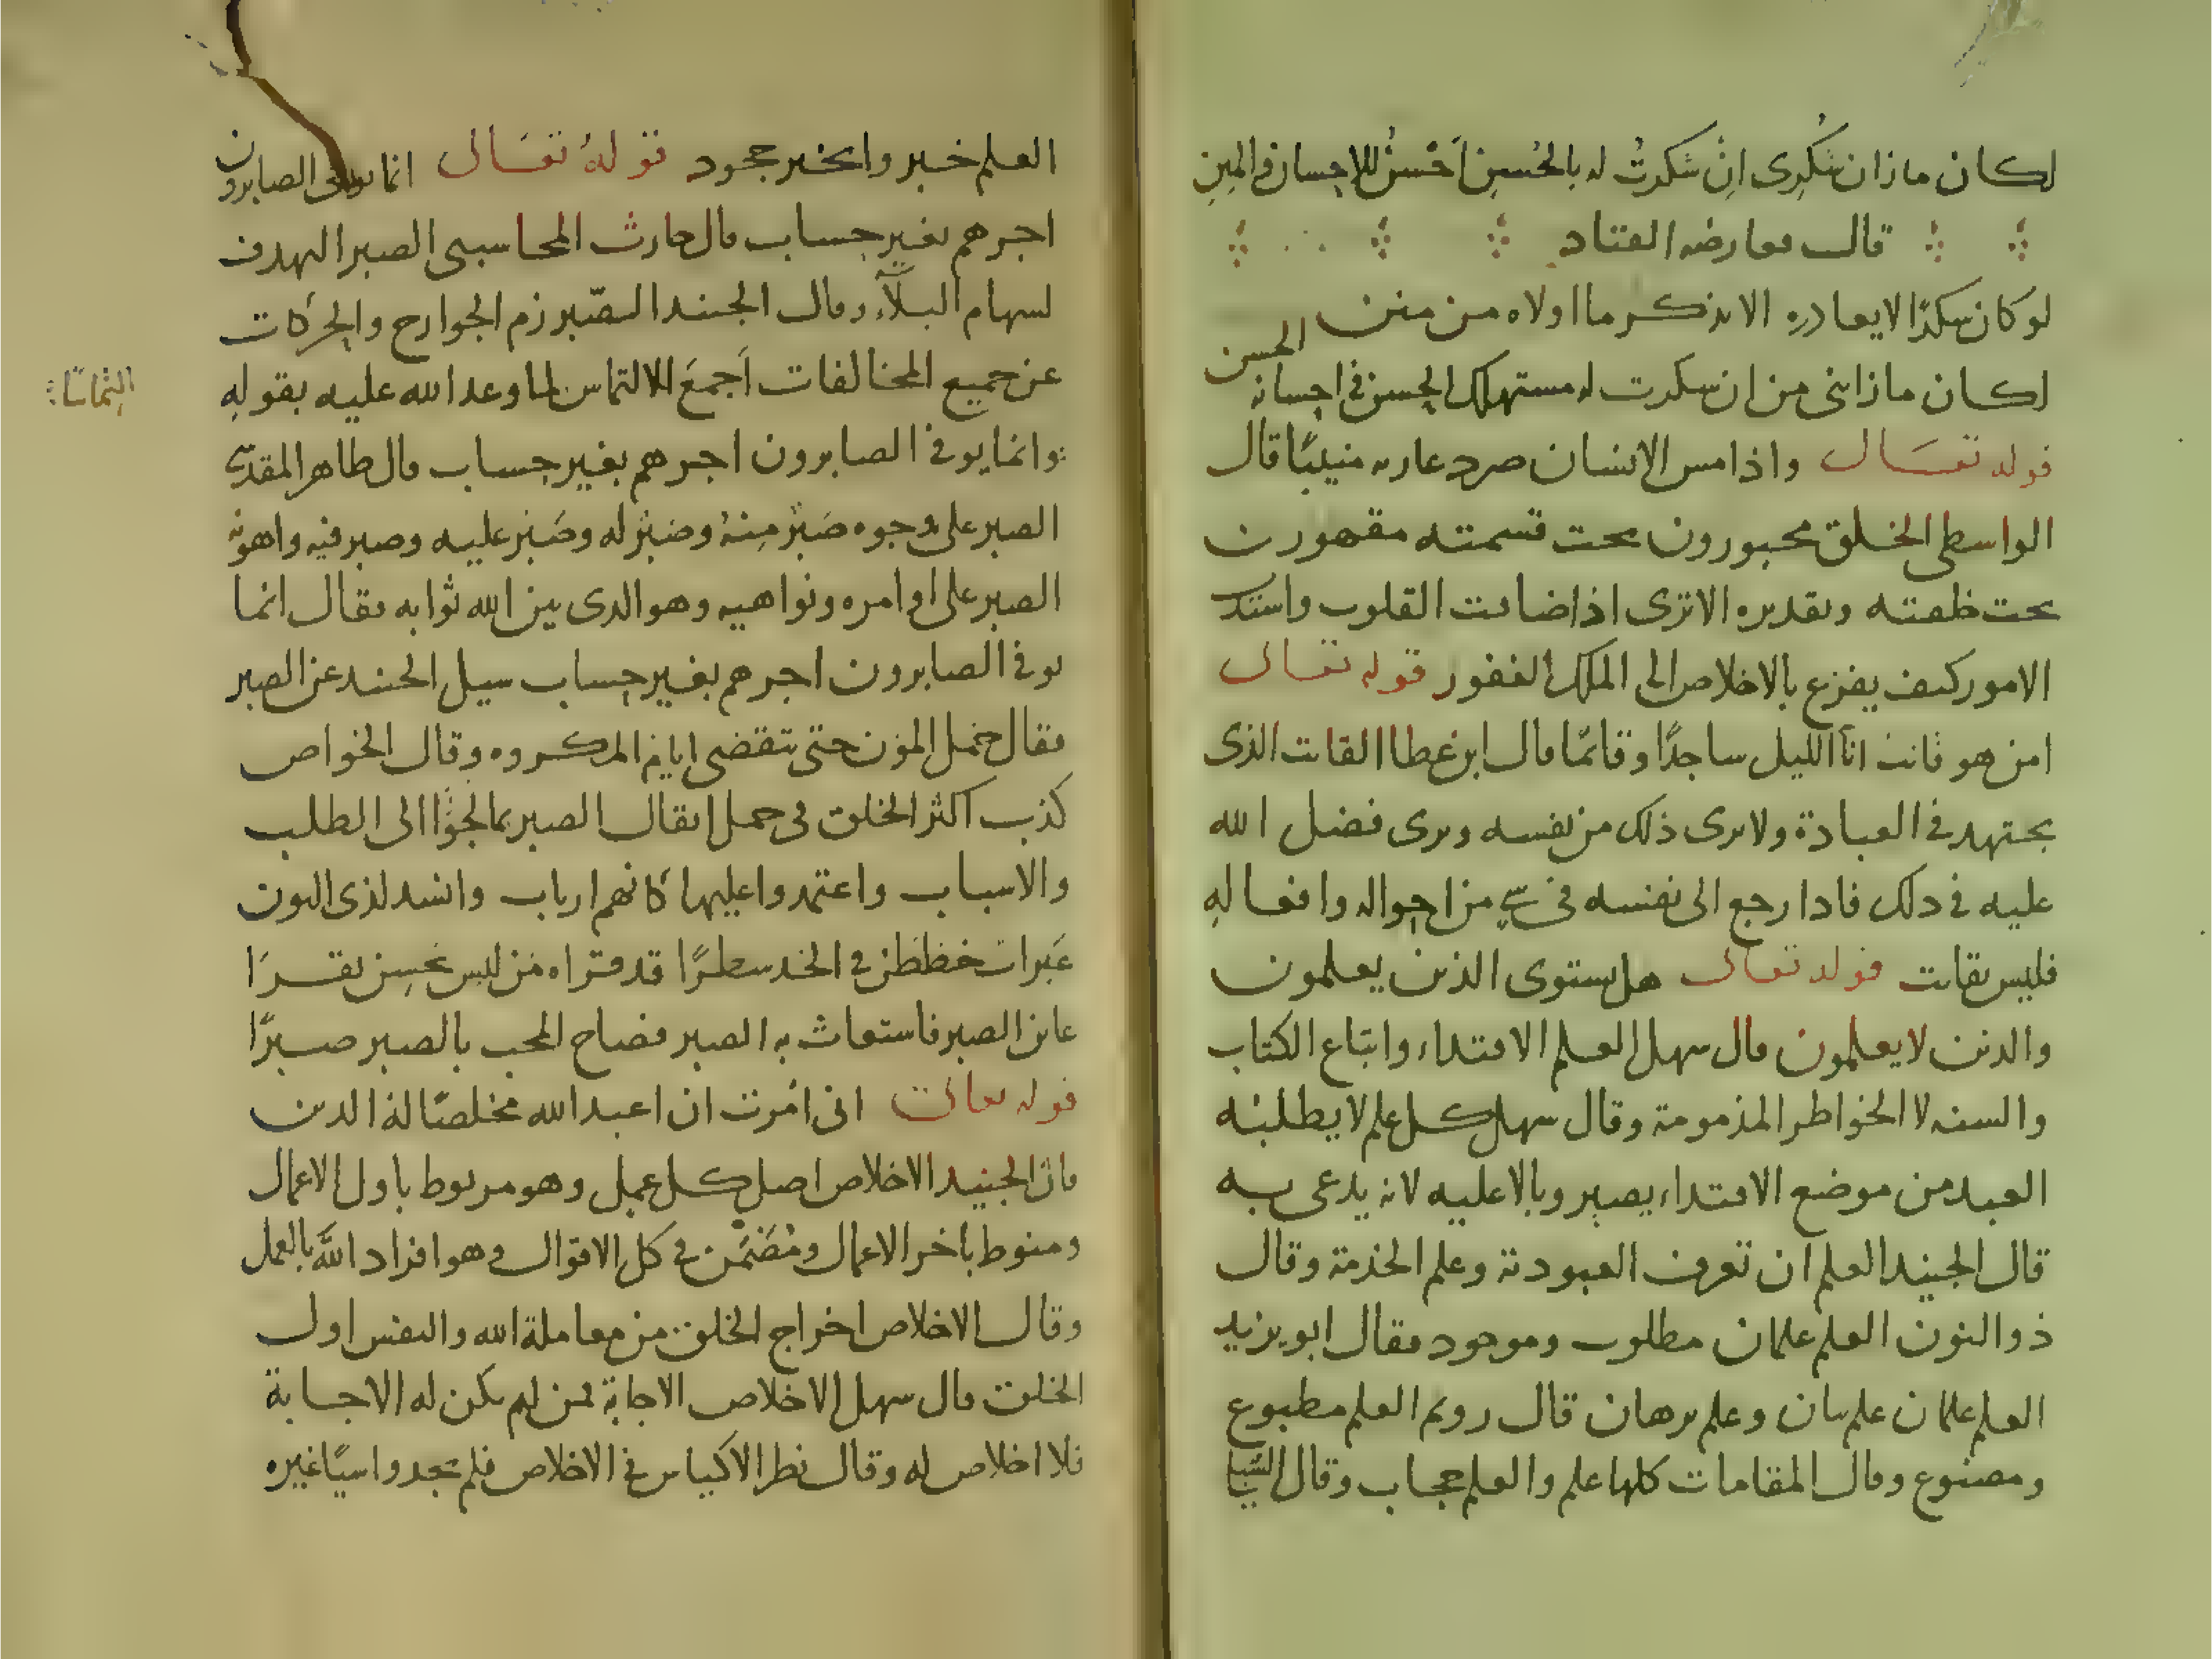 لكان ما زان شكرى ان شكرت له بالحسن احسن للاحسان فى المنن
قال معارضه العتاد
لو كان شكدا لا يعادره الا بذكر ما اولاه من منن
لكان ما زاننى من ان شكرت له مستهلك الحسن فى احسانه الحسن
قوله تعالى واذا مس الانسان ضر دعا ربه منيبا قال
الواسطى الخلق مجبورون تحت قسمته مقهورن
تحت خلقته وتقديره الا ترى اذا ضاقت القلوب واشتدت
الامور كيف يفزع بالاخلاص الى الملك الغفور قوله تعالى
امن هو قانت اناآ الليل ساجدا وقائما قال ابن عطا القانت الذى
يجتهد فى العبادة ولا يرى ذلك من نفسه ويرى فضل الله
عليه فى ذلك فاذا رجع الى نفسه فى شىء من احواله وافعاله
فليس بقانت قوله تعالى هل يستوى الذين يعلمون
والذين لا يعلمون قال سهل العلم الاقتداء واتباع الكتاب
والسنه لا الخواطر المذمومة وقال سهل كل علم لا يطلبه
العبد من موضع الاقتداء يصير وبالا عليه لانه يدعى به
قال الجنيد العلم ان تعرف العبودية وعلم الخدمة وقال
ذو النون العلم علمان مطلوب وموجود فقال ابو يزيد
العلم علمان علم بيان وعلم برهان قال رويم العلم مطبوع
ومصنوع وقال المقامات كلها علم والعلم حجاب وقال الشبلى
العلم خبر والخبر جحود قوله تعالى انما يوفى الصابرون
اجرهم بغير حساب قال حارث المحاسبى الصبر التهدف
لسهام البلآء وقال الجنيد الصبر زم الجوارح والحركات
عن جميع المخالفات اجمع للالتماس لما وعد الله عليه بقوله
التماسا
وانما يوفى الصابرون اجرهم بغير حساب قال طاهر المقدسى
الصبر على وجوه صبر منه وصبر له وصبر عليه وصبر فيه واهونه
الصبر على اوامره ونواهيه وهو الذى بين الله ثوابه فقال انما
يوفى الصابرون اجرهم بغير حساب سيل الجنيد عن الصبر
فقال حمل المؤن حتى تنقضى ايام المكروه وقال الخواص
كذب اكثر الخلق فى حمل اثقال الصبر بما لجؤا الى الطلب
والاسباب واعتمدوا عليها كانهم ارباب وانشد لذى النون
عبرات خططن فى الخد سطرا قد قراه من ليس يحسن يقرا
عابن الصبر فاستغاث به الصبر فصاح المحب بالصبر صبرا
قوله تعالى انى امرت ان اعبد الله مخلصا له الدين
قال الجنيد الاخلاص اصل كل عمل وهو مربوط باول الاعمال
ومنوط باخر الاعمال ومضمن فى كل الاقوال وهو افراد الله بالعمل
وقال الاخلاص اخراج الخلق من معاملة الله والنفس اول
الخلق قال سهل الاخلاص الاجابة فمن لم يكن له الاجابة
فلا اخلاص له وقال نظر الاكياس فى الاخلاص فلم يجدوا شيا غيره